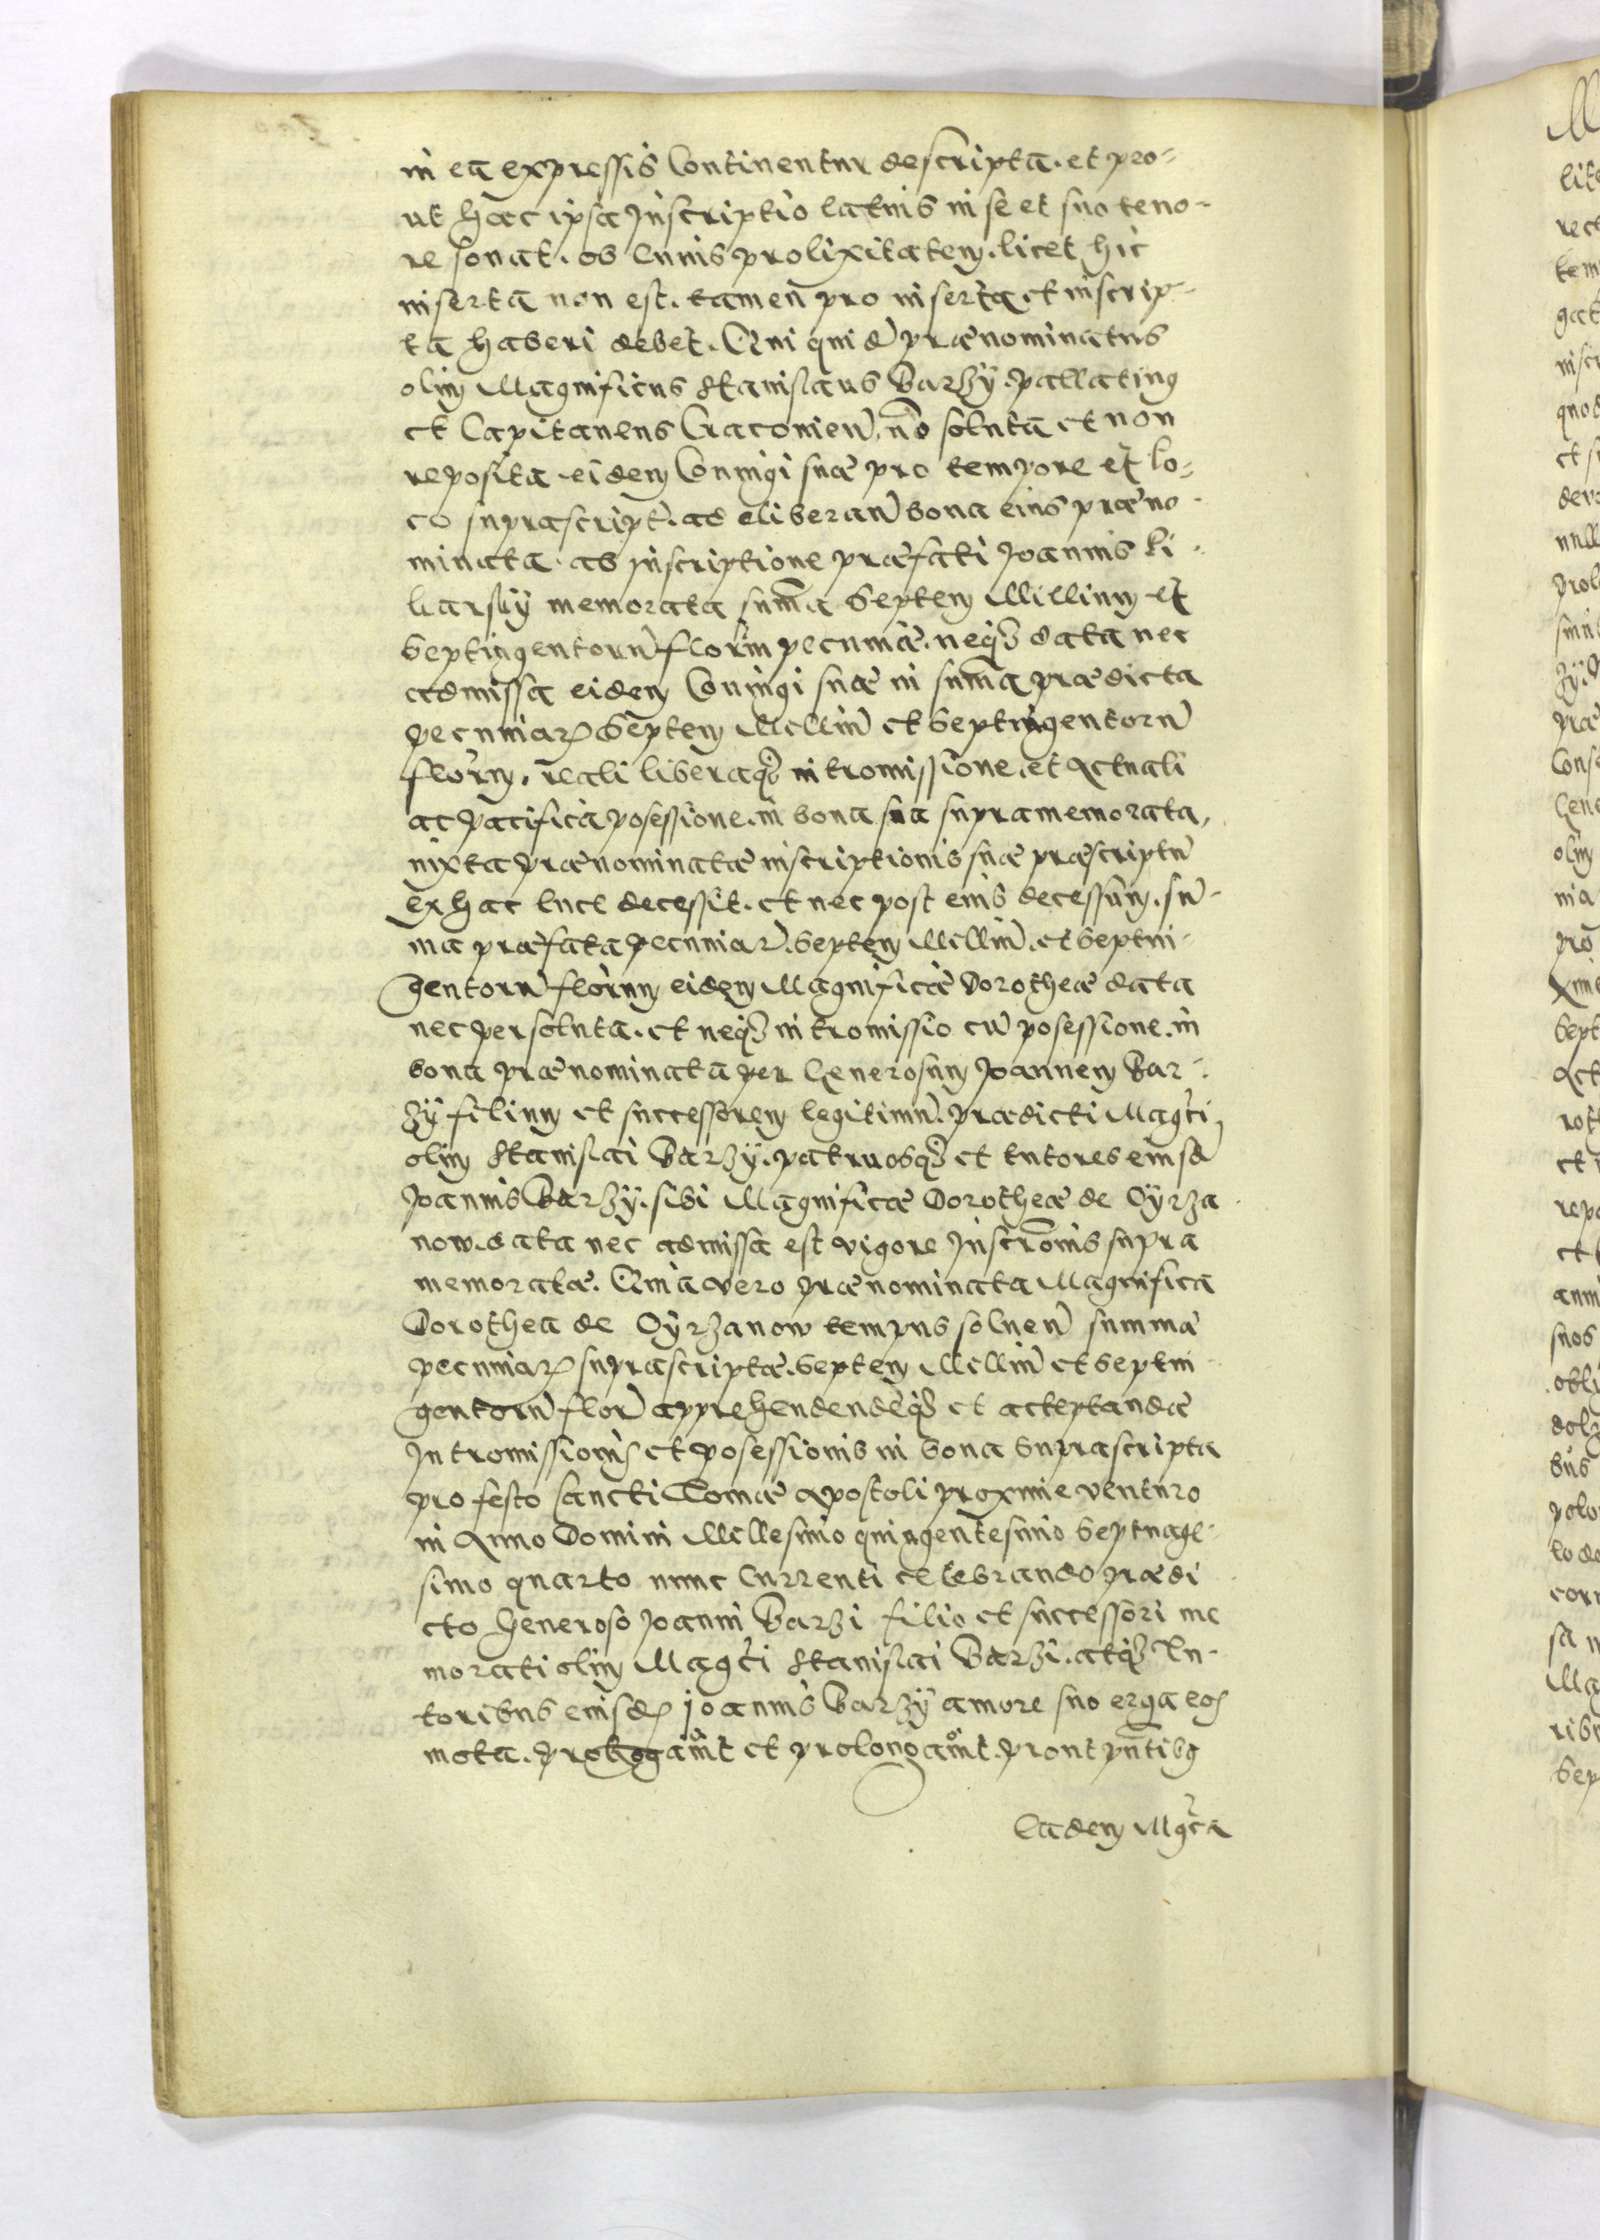 in ea expressis Continentur descripta. et pro-
ut haec ipsa Inscriptio latius in se et suo teno-
re sonat. ob cuius prolixitatem. licet hic
inserta non est. tamen pro inserta et inscrip-
ta haberi debet. Qui quid praenominatus
olim Magnificus Stanislaus Barzÿ. pallatinus
et Capitaneus Cracovien. no soluta et non
reposita eidem Coniugi suae pro tempore et lo-
co suprascript. ad eliberan bona eius praeno-
minata ab inscriptione praefati Joannis Li-
barskÿ memorata suma Septem Millium et
Septingentoru florin pecuniae. neqz data nec
admissa eidem Coniugi suae in suma praedicta
pecuniarz Septem Millin et Septingentoru
florim. reali liberaqz intromissione. et Actuali
ac pacifica posessione. in bona sua supramemorata,
iuxta praenominatae inscriptionis suae praescriptu
Ex hac luce decessit. et nec post eius decessum. su-
ma praefata pecuniar. Septem Millin. et Septin-
gentoru florinum eidem Magnificae Dorotheae data
nec persoluta. et neqz intromissio cu posessione. in
bona praenominata per Generosum Joannem Bar-
zÿ filium et successorem legitimu. praedicti Magci
olim Stanislai Barzÿ. patruosqz et tutores eiusd
Joannis Barzÿ. sibi Magnificae Dorotheae de Oÿrza
now. data nec admissa est vigore Inscronis supra
memoratae. Quia vero praenominata Magnifica
Dorothea de Oÿrzanow tempus soluen summa
pecuniarz suprascriptae. Septem Millin et Septin
gentoru flor apprehendendeqz et acceptandae
Intromissionis et posessionis in bona Suprascripta
pro festo Sancti Tomae Apostoli proxime venturo
in Anno Domini Millesimo quingentesimo Septuage-
simo quarto nunc Currenti celebrando praedi
cto Generoso Joanni Barzi filio et successori me
morati olim Magci Stanislai Barzi. atqz Tu-
toribus eiusdez joannis Barzÿ amore suo erga eos
mota. prorogamt et prolongamt. prout pntibus
Eadem Mgca